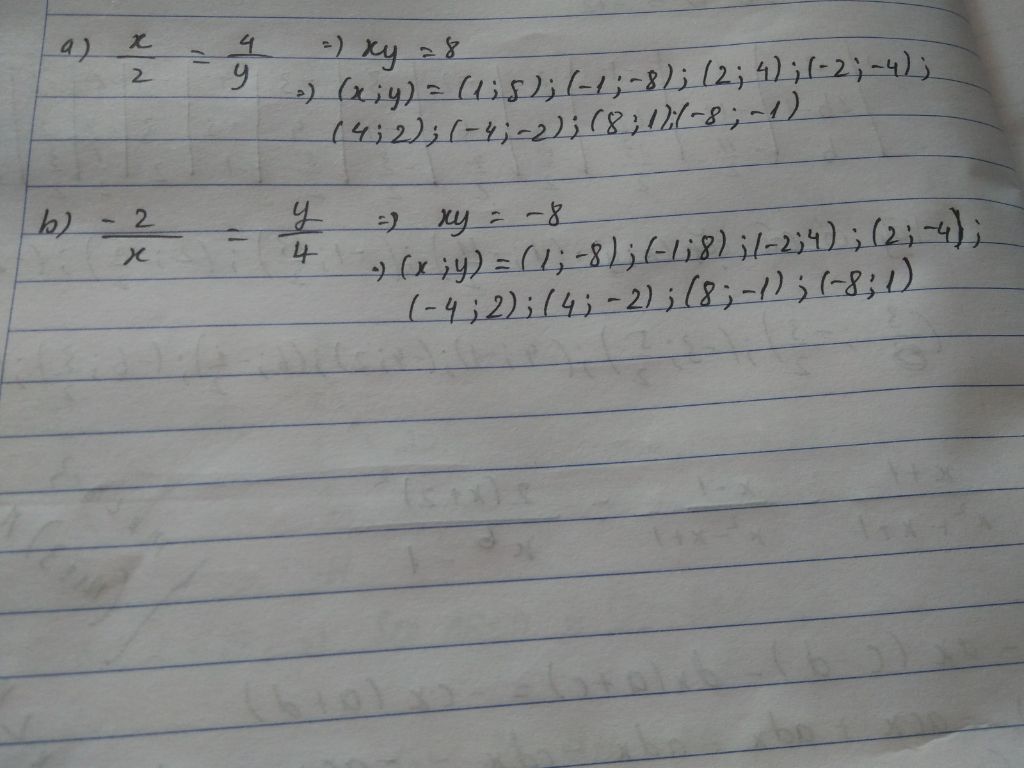 a) x/2 = 4/y => xy = 8
=> (x;y) = (1;8);(-1;-8);(2;4);(-2;-4);
(4;2);(-4;-2);(8;1);(-8;-1)
b) -2/x = y/4 => xy = -8
=> (x;y) = (1;-8);(-1;8);(-2;4);(2;-4);
(-4;2);(4;-2);(8;-1);(-8;1)